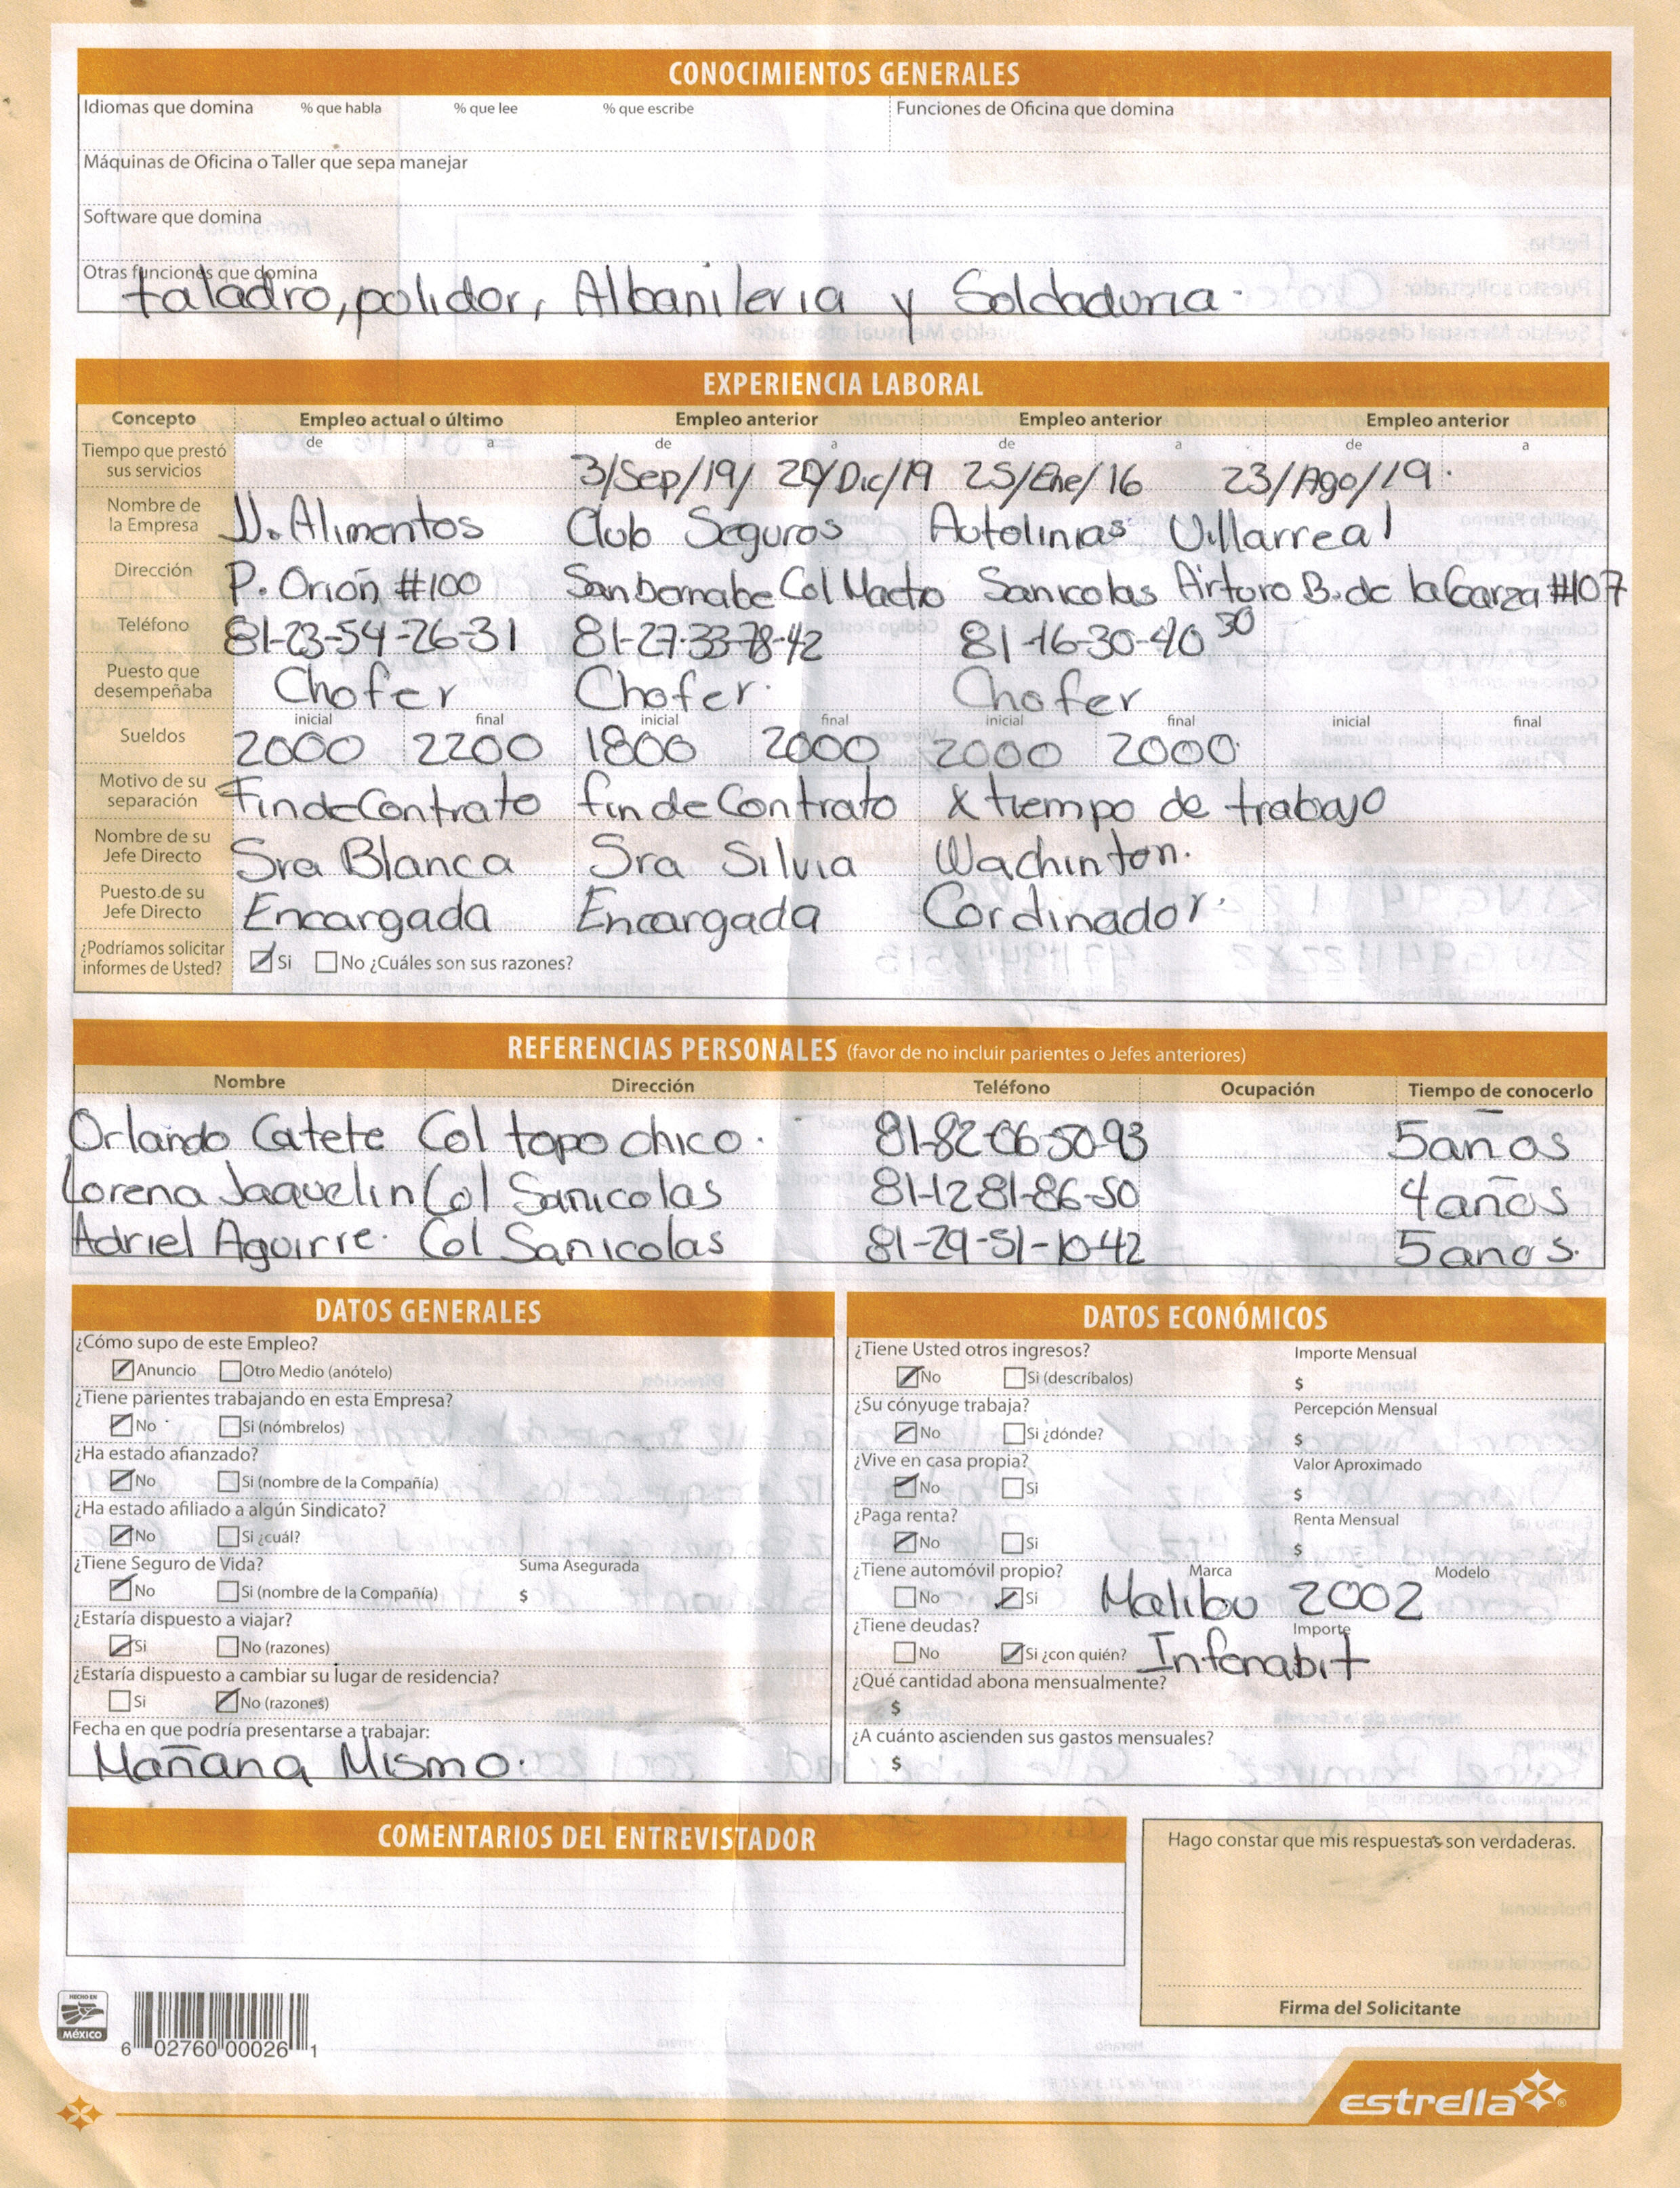 CONOCIMIENTOS GENERALES
Idiomas que domina % que habla % que lee % que escribe Funciones de Oficina que domina
Máquinas de Oficina o Taller que sepa manejar
Software que domina
Otras funciones que domina
taladro, polidor, Albanileria y Soldaduria.
EXPERIENCIA LABORAL
Concepto Empleo actual o último Empleo anterior Empleo anterior Empleo anterior
Tiempo que prestó sus servicios de a de a de a de a
3/Sep/19/ 20/Dic/19 25/Ene/16 23/Ago/19.
Nombre de la Empresa Alimentos Club Seguros Autolinias Villarreal
Dirección P. Orión #100 San bernabe Col Sanicolas Arturo B. de la Garza #107
Teléfono 81-23-54-26-31 81-27-33-78-42 81-16-30-40 50
Puesto que desempeñaba Chofer Chofer. Chofer
Sueldos inicial final inicial final inicial final inicial final
2000 2200 1800 2000 2000 2000.
Motivo de su separación Fin de Contrato fin de Contrato x tiempo de trabajo
Nombre de su Jefe Directo Sra Blanca Sra Silvia Wachinton.
Puesto de su Jefe Directo Encargada Encargada Cordinador.
¿Podríamos solicitar informes de Usted? Si No ¿Cuáles son sus razones?
REFERENCIAS PERSONALES (favor de no incluir parientes o Jefes anteriores)
Nombre Dirección Teléfono Ocupación Tiempo de conocerlo
Orlando Catete Col topo chico. 81-82-06-50-93 5 años
Lorena Jaquelin Col Sanicolas 81-12 81-86-50 4 anos
Adriel Aguirre. Col Sanicolas 81-29-51-10-42 5 anos.
DATOS GENERALES
¿Cómo supo de este Empleo?
Anuncio Otro Medio (anótelo)
¿Tiene parientes trabajando en esta Empresa?
No Si (nómbrelos)
¿Ha estado afianzado?
No Si (nombre de la Compañía)
¿Ha estado afiliado a algún Sindicato?
No Si ¿cuál?
¿Tiene Seguro de Vida? Suma Asegurada
No Si (nombre de la Compañía) $
¿Estaría dispuesto a viajar?
Si No (razones)
¿Estaría dispuesto a cambiar su lugar de residencia?
Si No (razones)
Fecha en que podría presentarse a trabajar:
Mañana Mismo.
DATOS ECONÓMICOS
¿Tiene Usted otros ingresos? Importe Mensual
No Si (descríbalos) $
¿Su cónyuge trabaja? Percepción Mensual
No Si ¿dónde? $
¿Vive en casa propia? Valor Aproximado
No Si $
¿Paga renta? Renta Mensual
No Si $
¿Tiene automóvil propio? Marca Modelo
No Si Malibu 2002
¿Tiene deudas? Importe
No Si ¿con quién? Infonabit
¿Qué cantidad abona mensualmente?
$
¿A cuánto ascienden sus gastos mensuales?
$
COMENTARIOS DEL ENTREVISTADOR
Hago constar que mis respuestas son verdaderas.
Firma del Solicitante
HECHO EN
MÉXICO
6 02760 00026 1
estrella